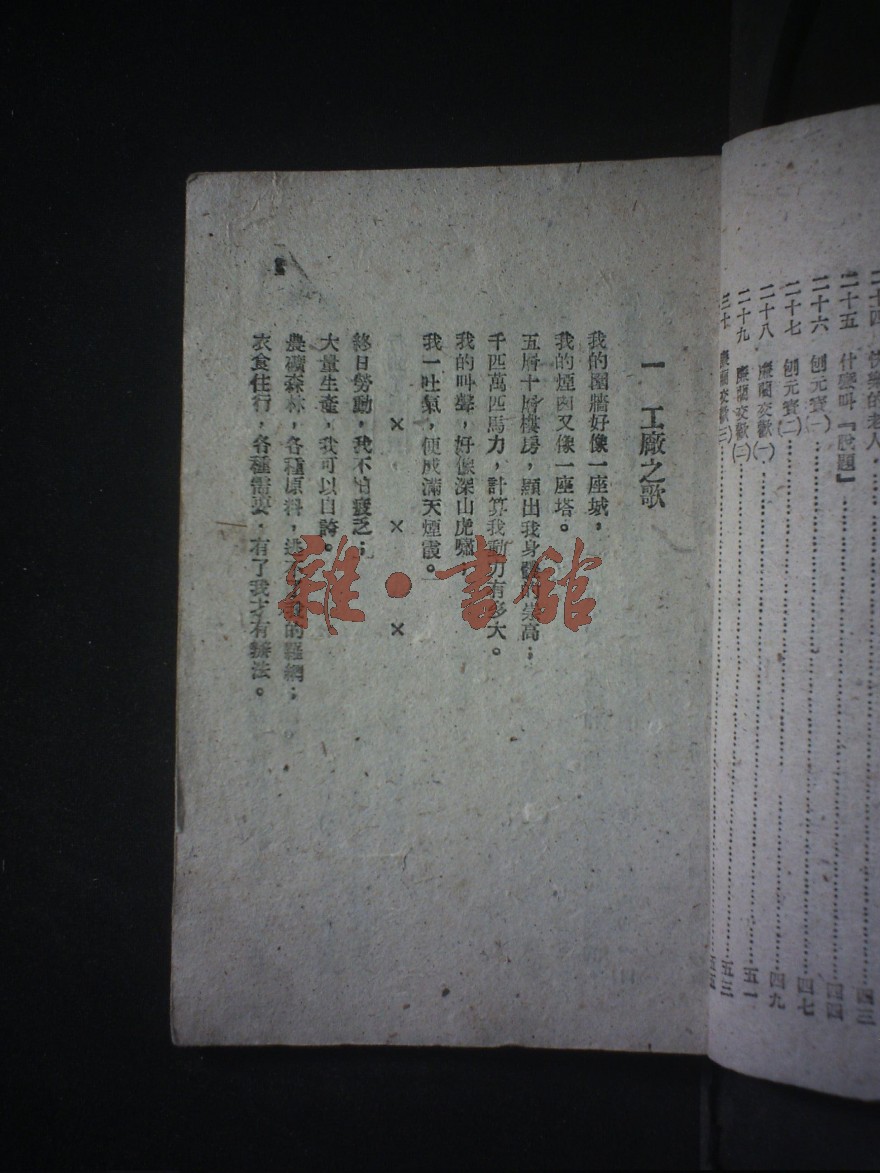 二十四　快樂的老人……四三
二十五　什麼叫『脫題』……四四
二十六　刨元寶(一)……
二十七　刨元寶(二)……四七
二十八　廉藺交歡(一)……四九
二十九　廉藺交歡(二)……五一
三十　廉藺交歡(三)……五三
一　工廠之歌
我的圍牆好像一座城，
我的煙囪又像一座塔。
五層十層樓房，顯出我身體的崇高；
千匹萬匹馬力，計算我動力有多大。
我的叫聲，好像深山虎嘯，
我一吐氣，便成滿天煙霞。
×　×　×
終日勞動，我不怕疲乏；
大量生產，我可以自誇。
農礦森林，各種原料，逃不了我的羅網；
衣食住行，各種需要，有了我才有辦法。
雜·書館